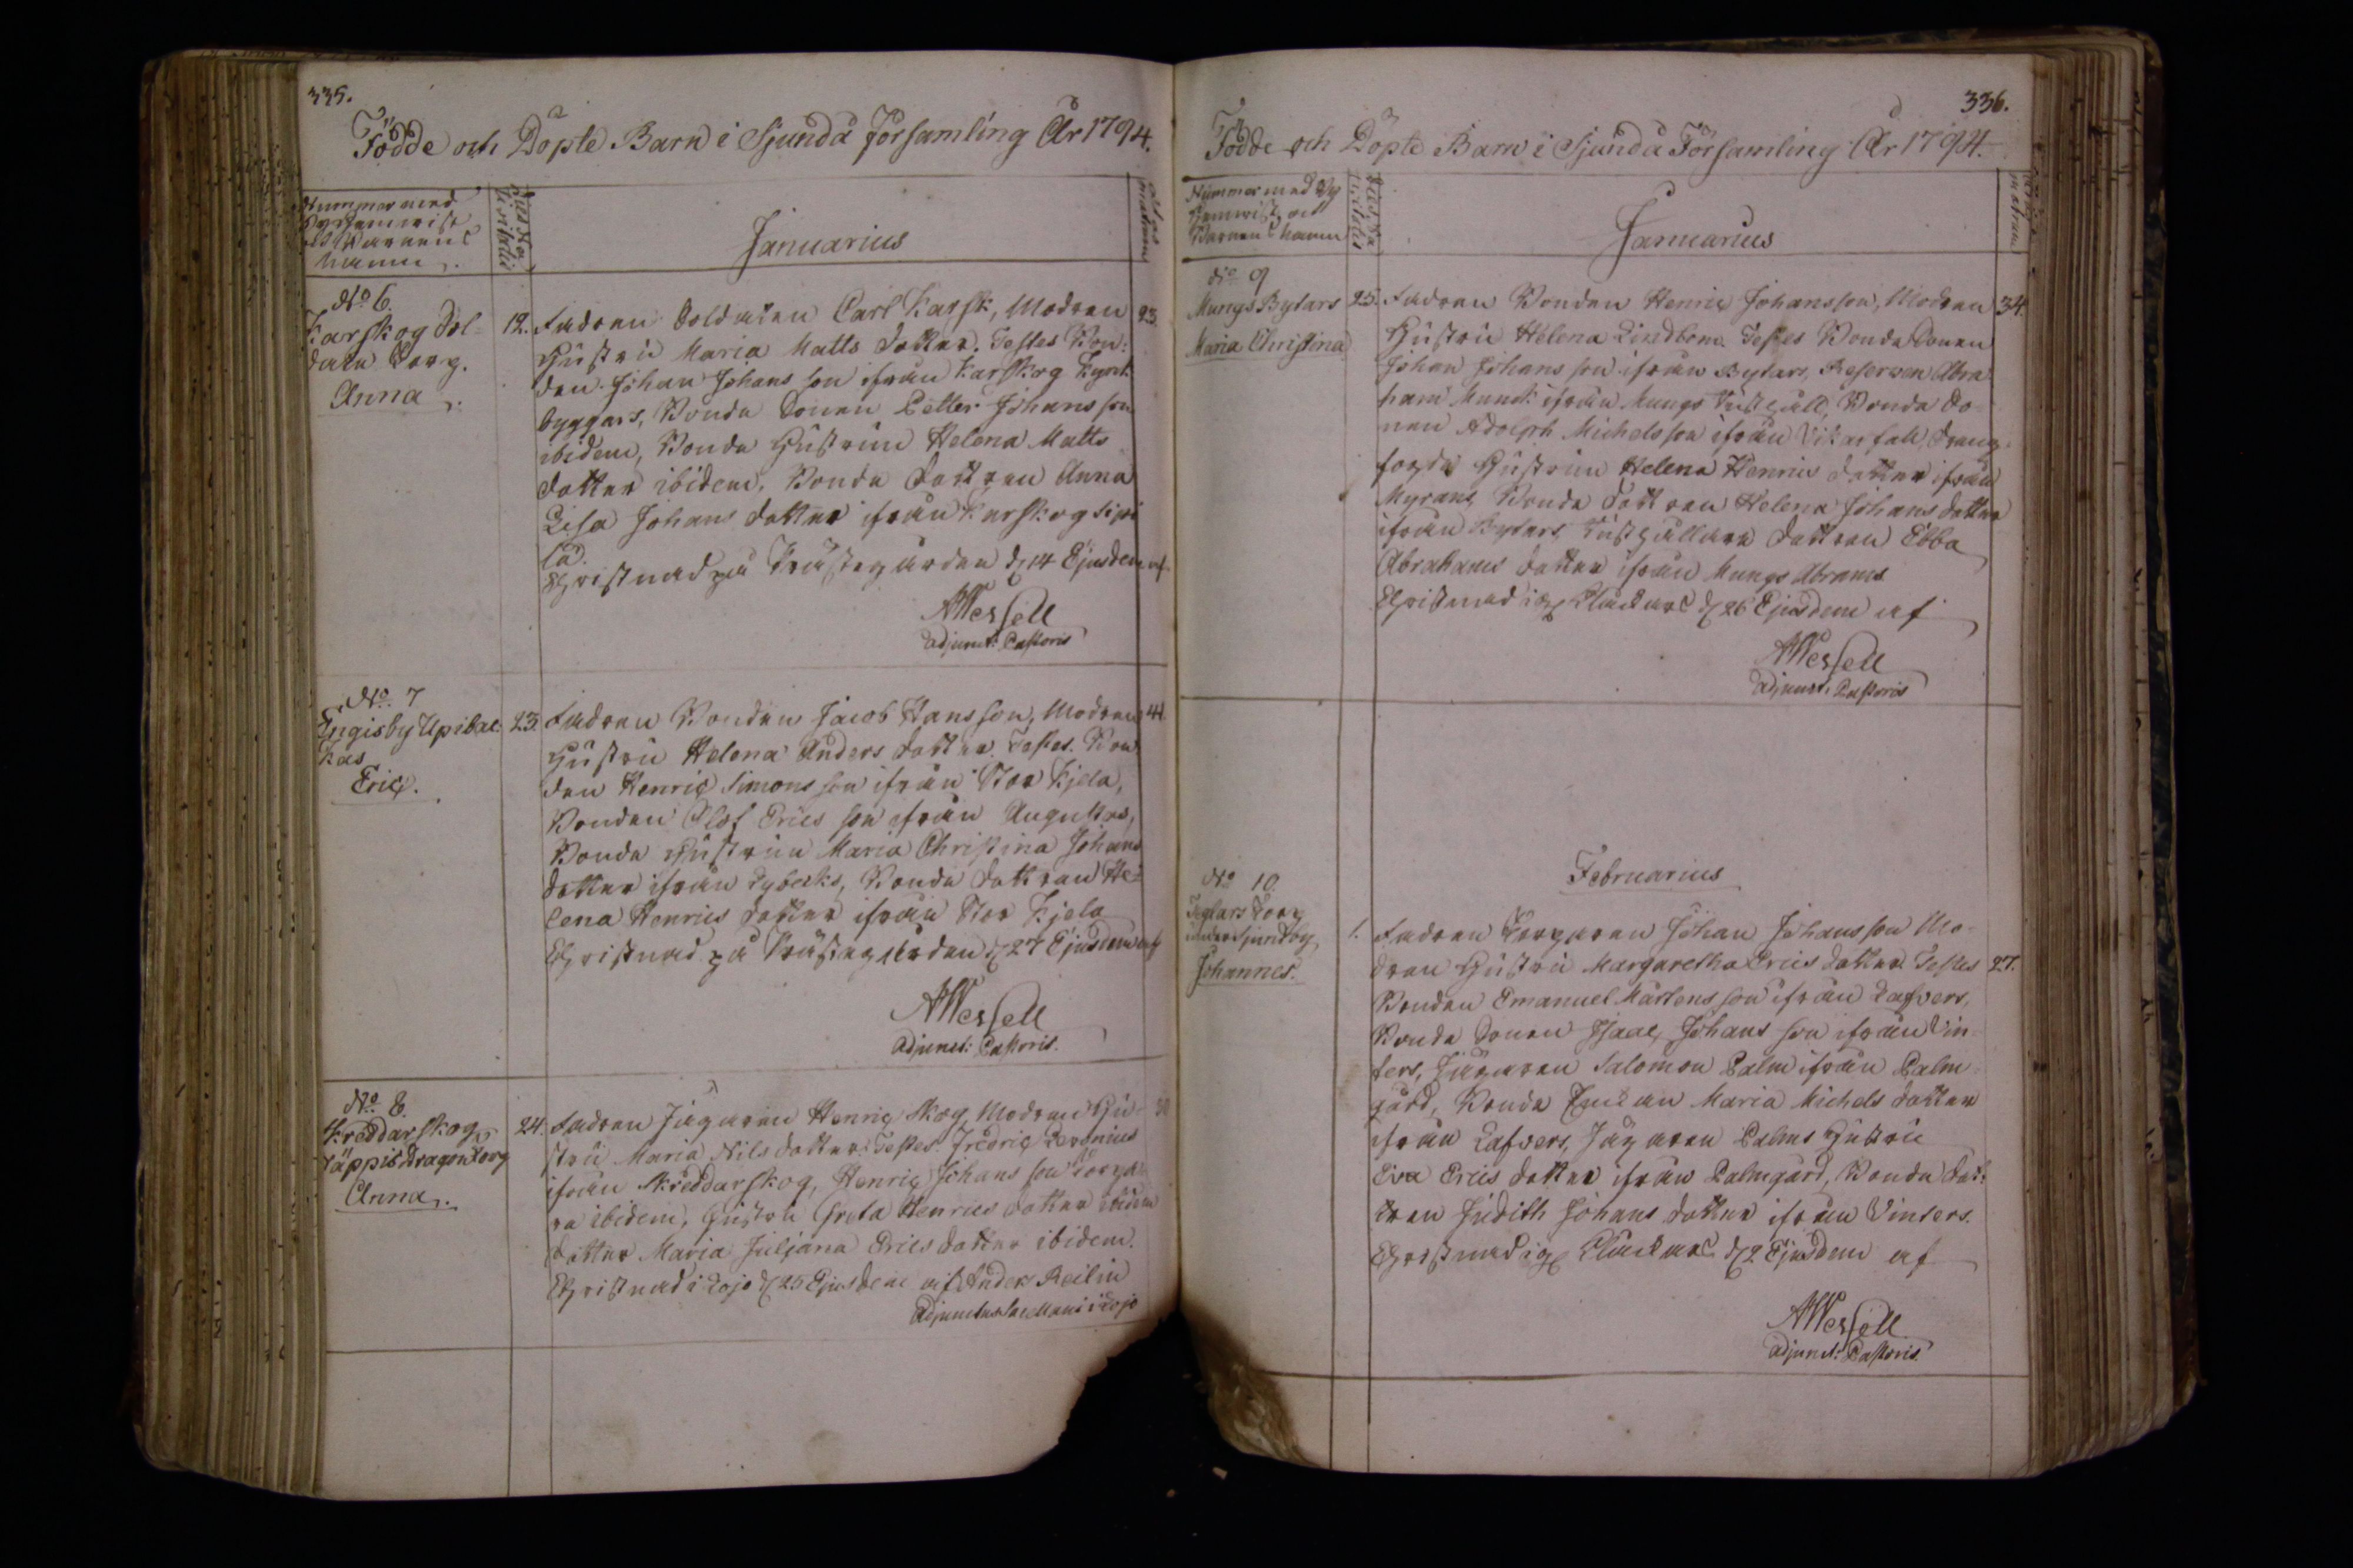 335.
Födde och Döpte Barn i Sjundå Församling År 1794.
Nummer med
Byanamnist
och Barnens
namn.
Januarius
No 6.
Karskog Sol-
date Torg.
Anna
12. Fadren Soldaten Carl Karsk, Modren 23.
Hustru Maria Matts dotter. Testes Bon-
den Johan Johans son ifrån Karskog Kyrk
byggars, Bonde Sonen Petter Johans son
ibidem, Bonde Hustrun Helena Matts
dotter ibidem, Bonde Dottren Anna
Lisa Johans dotter ifrån Karskog Sipi
lä.
Christnad på Prästegården d. 14 Ejusdem af
AWessell
Adjunct: Pastoris
No. 7
Engisby Upibac-
kas
Eric.
23. Fadren Bonden Jacob Hans son, Modren 41
Hustru Helena Anders dotter. Testes. Bon-
den Henric Simons son ifrån Stor Kjela,
Bonden Olof Erics son ifrån Angusters,
Bonde Hustrun Maria Christina Johans
dotter ifrån Lybecks, Bonde Dottren He-
lena Henrics dotter ifrån Stor Kjela
Christnad på Prästegården d. 27 Ejusdem af
AWessell
Adjunct: Pastoris.
No. 8.
Skreddarskog
Täppis Dragon Torg
Anna.
24. Fadren Jägaren Henric Skog Modren Hu- 30
stru Maria Nils dotter. Testes. Fredric Leronius
ifrån Skreddarskog, Henric Johans son Torpa-
re ibidem, Hustru Greta Henrics dotter ibidem
Dotter Maria Juljana Erics dotter ibidem.
Christnad i Lojo d. 25 Ejusdem af Ander Reilin
Adjunctus Sacellani i Lojo
336.
Födde och Döpte Barn i Sjundå Församling År 1794.
Nummer med By
namnist och
Barnens namn
Januarius
No 9
Mungs Bytars
Maria Christina
25. Fadren Bonden Henric Johansson, Modren 34.
Hustru Helena Lindbom. Testes Bonde Sonen
Johan Johans son ifrån Bytars, Reserven Abra-
ham Munck ifrån Mungs Kustgåll, Bonde So-
nen Adolph Michels son ifrån Vikarfall, Dräng-
fogde Hustrun Helena Henrics dotter ifrån
Myrans, Bonde Dottren Helena Johans dotter
ifrån Bytars, Kustgållare Dottren Ebba
Abrahams dotter ifrån Mungs Abrams
Christnad i Kluckars d. 26 Ejusdem af
AWessell
Adjunct: Pastoris
Februarius
No 10.
Teglars Torg
under Sjundby
Johannes.
1. Fadren Torparen Johan Johansson Mo-
dren Hustru Margaretha Erics dotter. Testes 27.
Bonden Emanuel Mårtens son ifrån Lafvers,
Bonde Sonen Isaac Johans son ifrån Vin-
ters, Jägaren Salomon Palm ifrån Palm-
gård, Bonde Enkan Maria Michels dotter
ifrån Lafvers, Jägaren Palms Hustru
Eva Erics dotter ifrån Palmgård, Bonde Dot-
tren Judith Johans dotter ifrån Vinters.
Christnad i Kluckars d. 2 Ejusdem af
AWessell
Adjunct: Pastoris